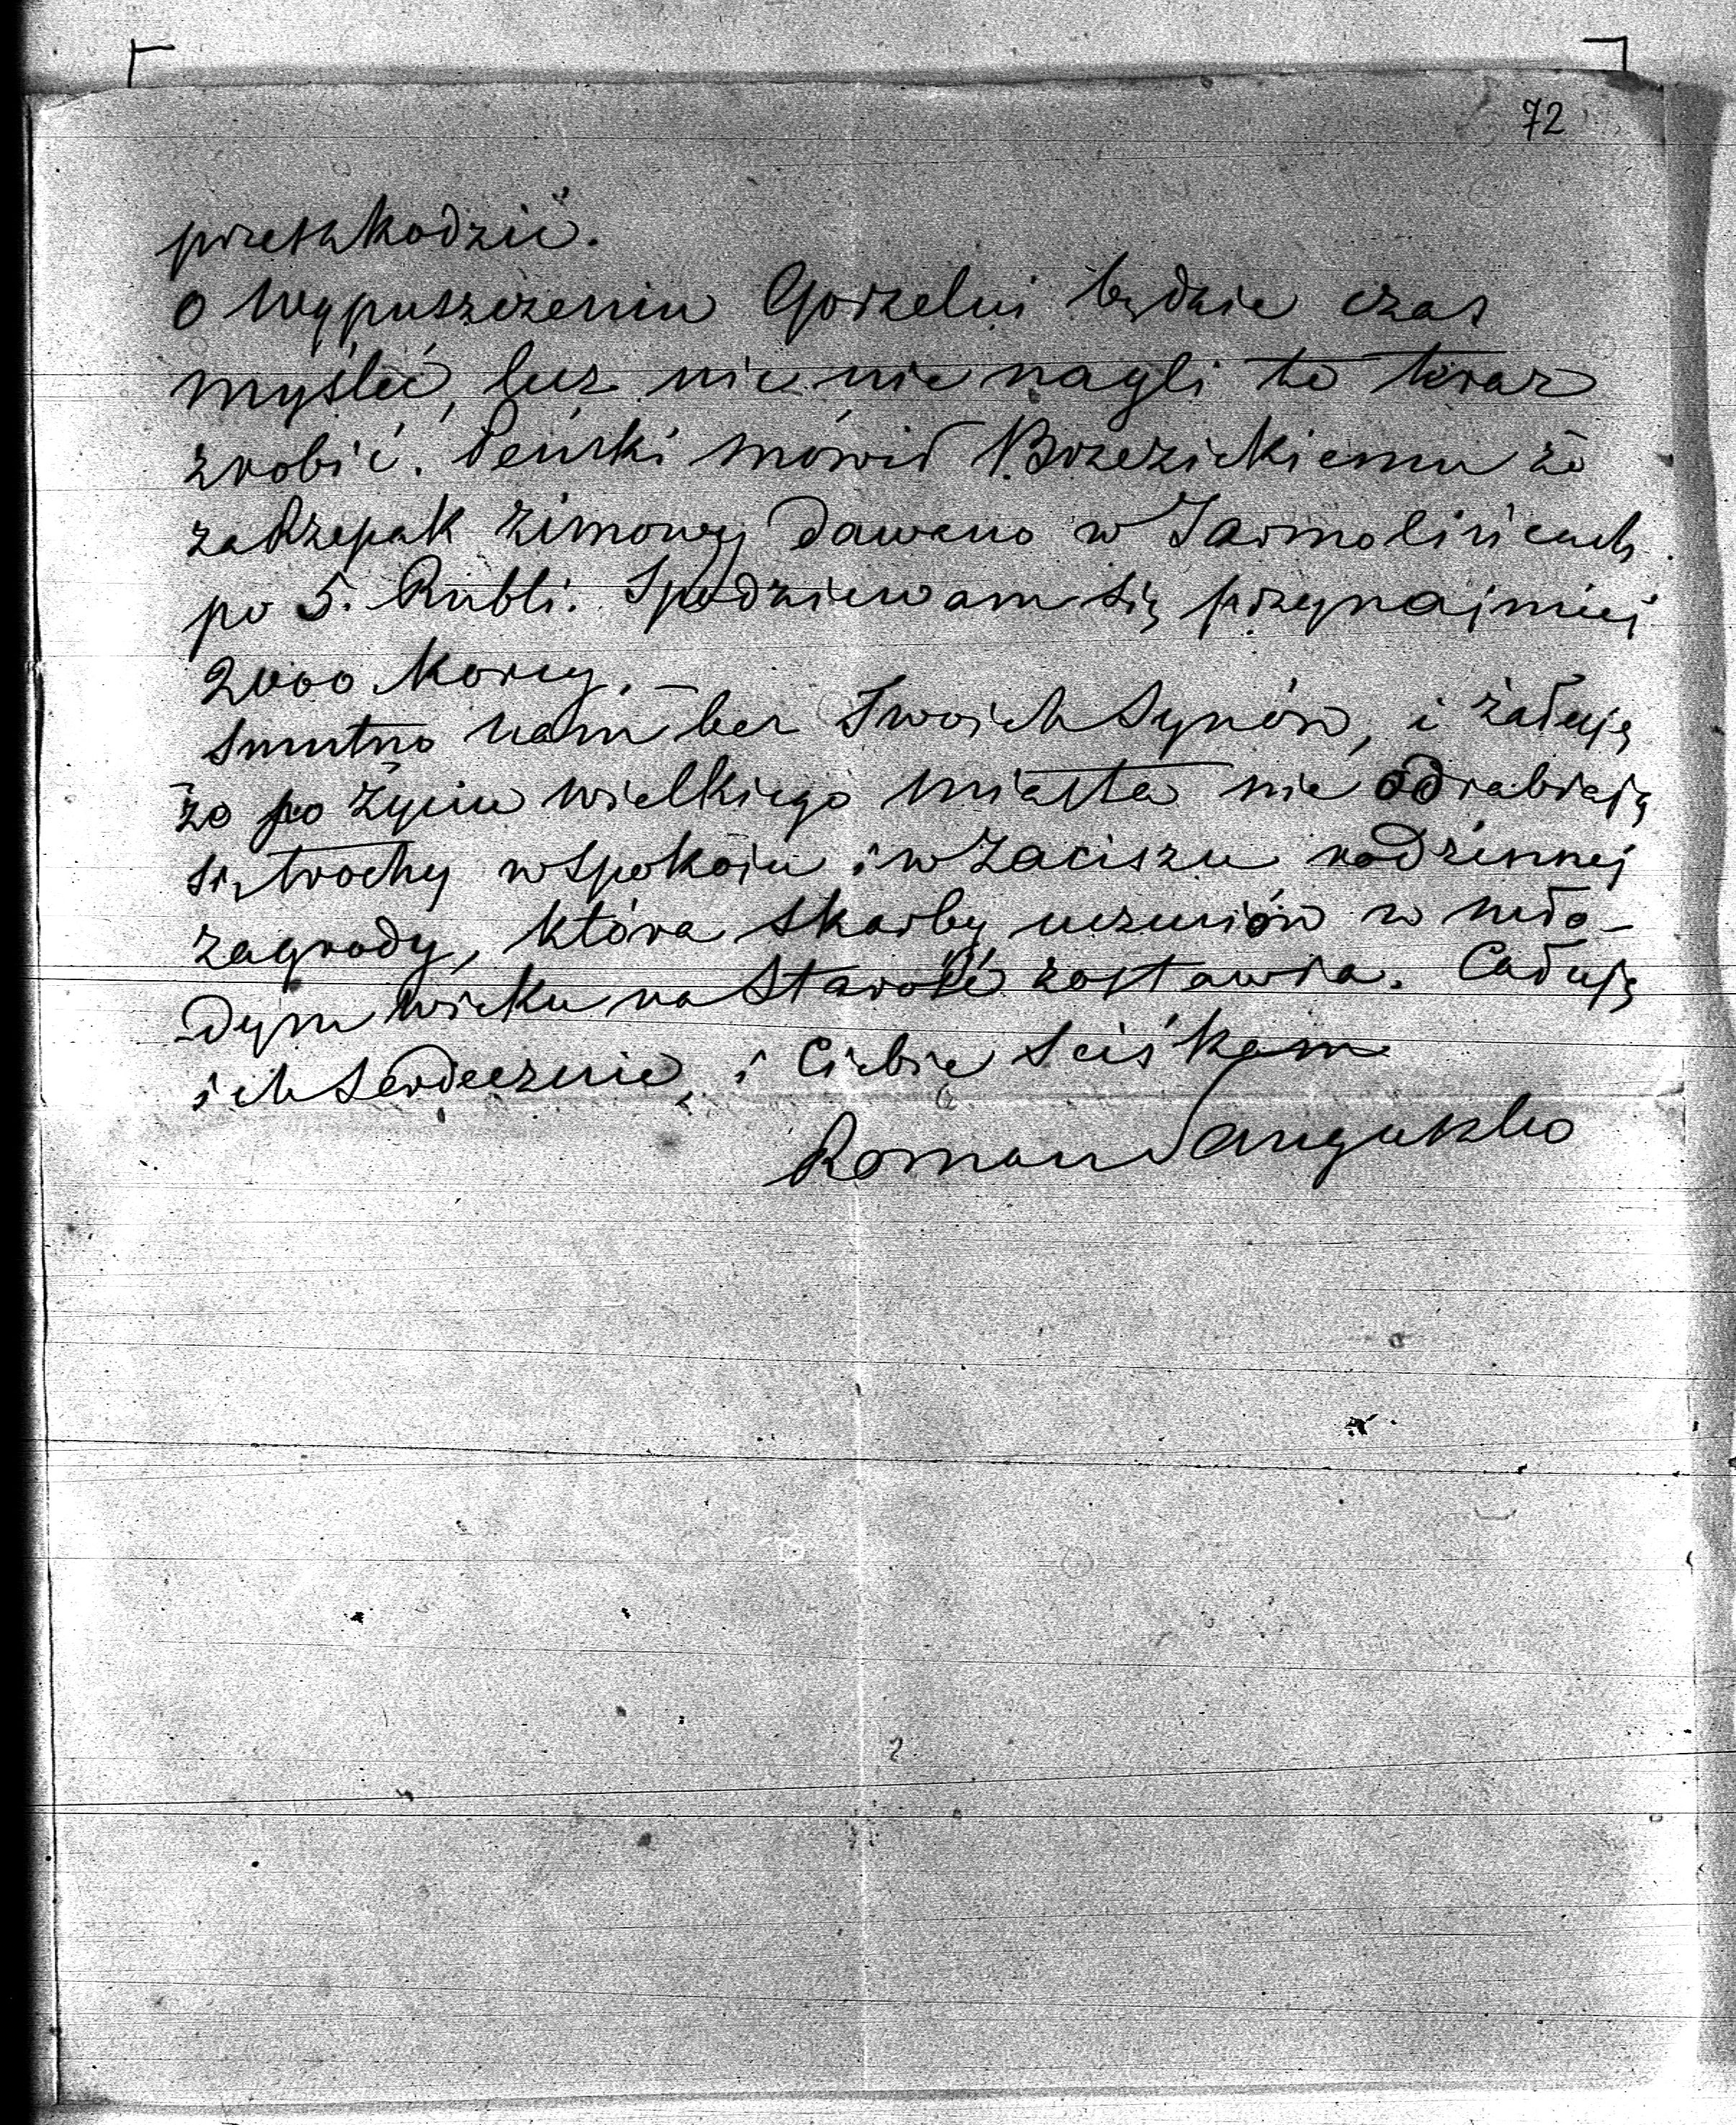 72
przeszkodzić.
o wypuszczeniu Gorzelni będzie czas
myśleć, lecz nic nie nagli to teraz
zrobić. Peński mówił Brzezickiemu że
za Rzepak zimowy dawano w Jarmolińcach
po 5. Rubli. Spodziewam się przynajmniej
2000 Korcy. —
Smutno nam bez Twoich Synów, i żałuję
że po życiu wielkiego miasta nie odrabiają
się trochy w spokoju i w zaciszu rodzinnej
zagrody, która skarby uczuciów w mło-
dym wieku na starość zostawia. Całuję
ich serdecznie, i Ciebie ściskam
Roman Sanguszko